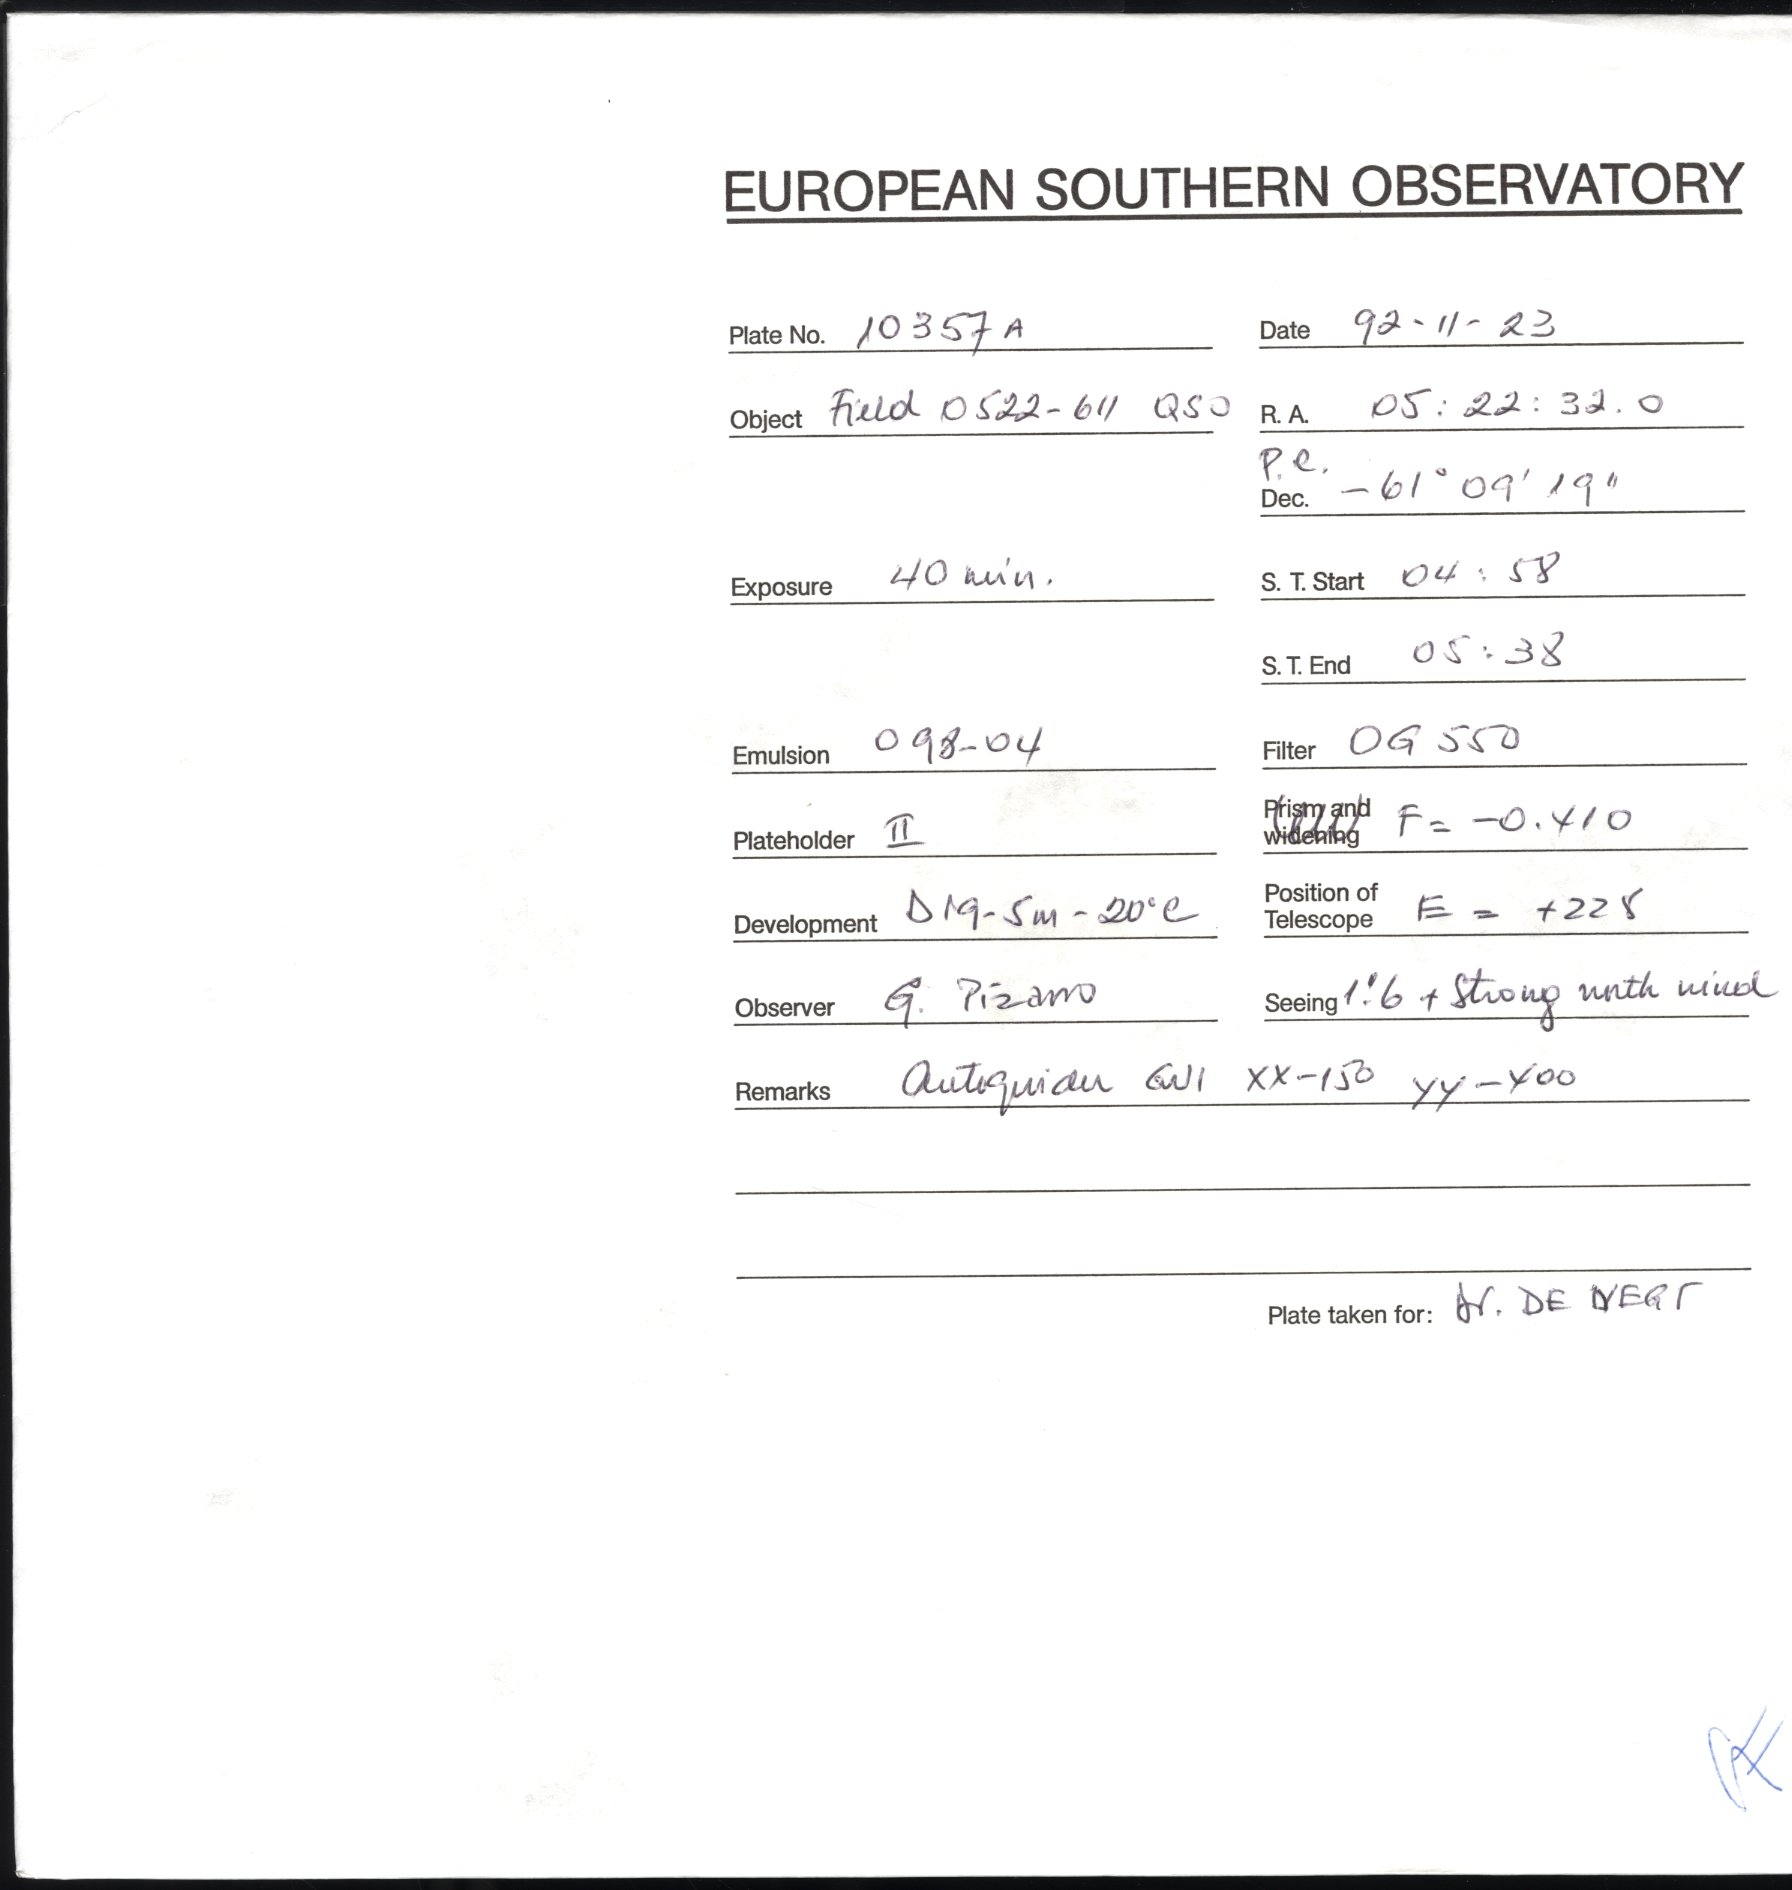 EUROPEAN SOUTHERN OBSERVATORY
Plate No. 10357 A Date 92-11-23
Object Field 0522-611 QSO R. A. 05:22:32.0
P.C.
Dec. -61° 09' 19"
Exposure 40 min. S. T. Start 04:58
S. T. End 05:38
Emulsion 098-04 Filter OG 550
Plateholder II Prism and widening F= -0.410
Development D19-5m-20°C Position of Telescope E = +228
Observer G. Pizarro Seeing 1".6 + Strong north wind
Remarks Autoguider XX-150 YY-400
Plate taken for: Dr. DE